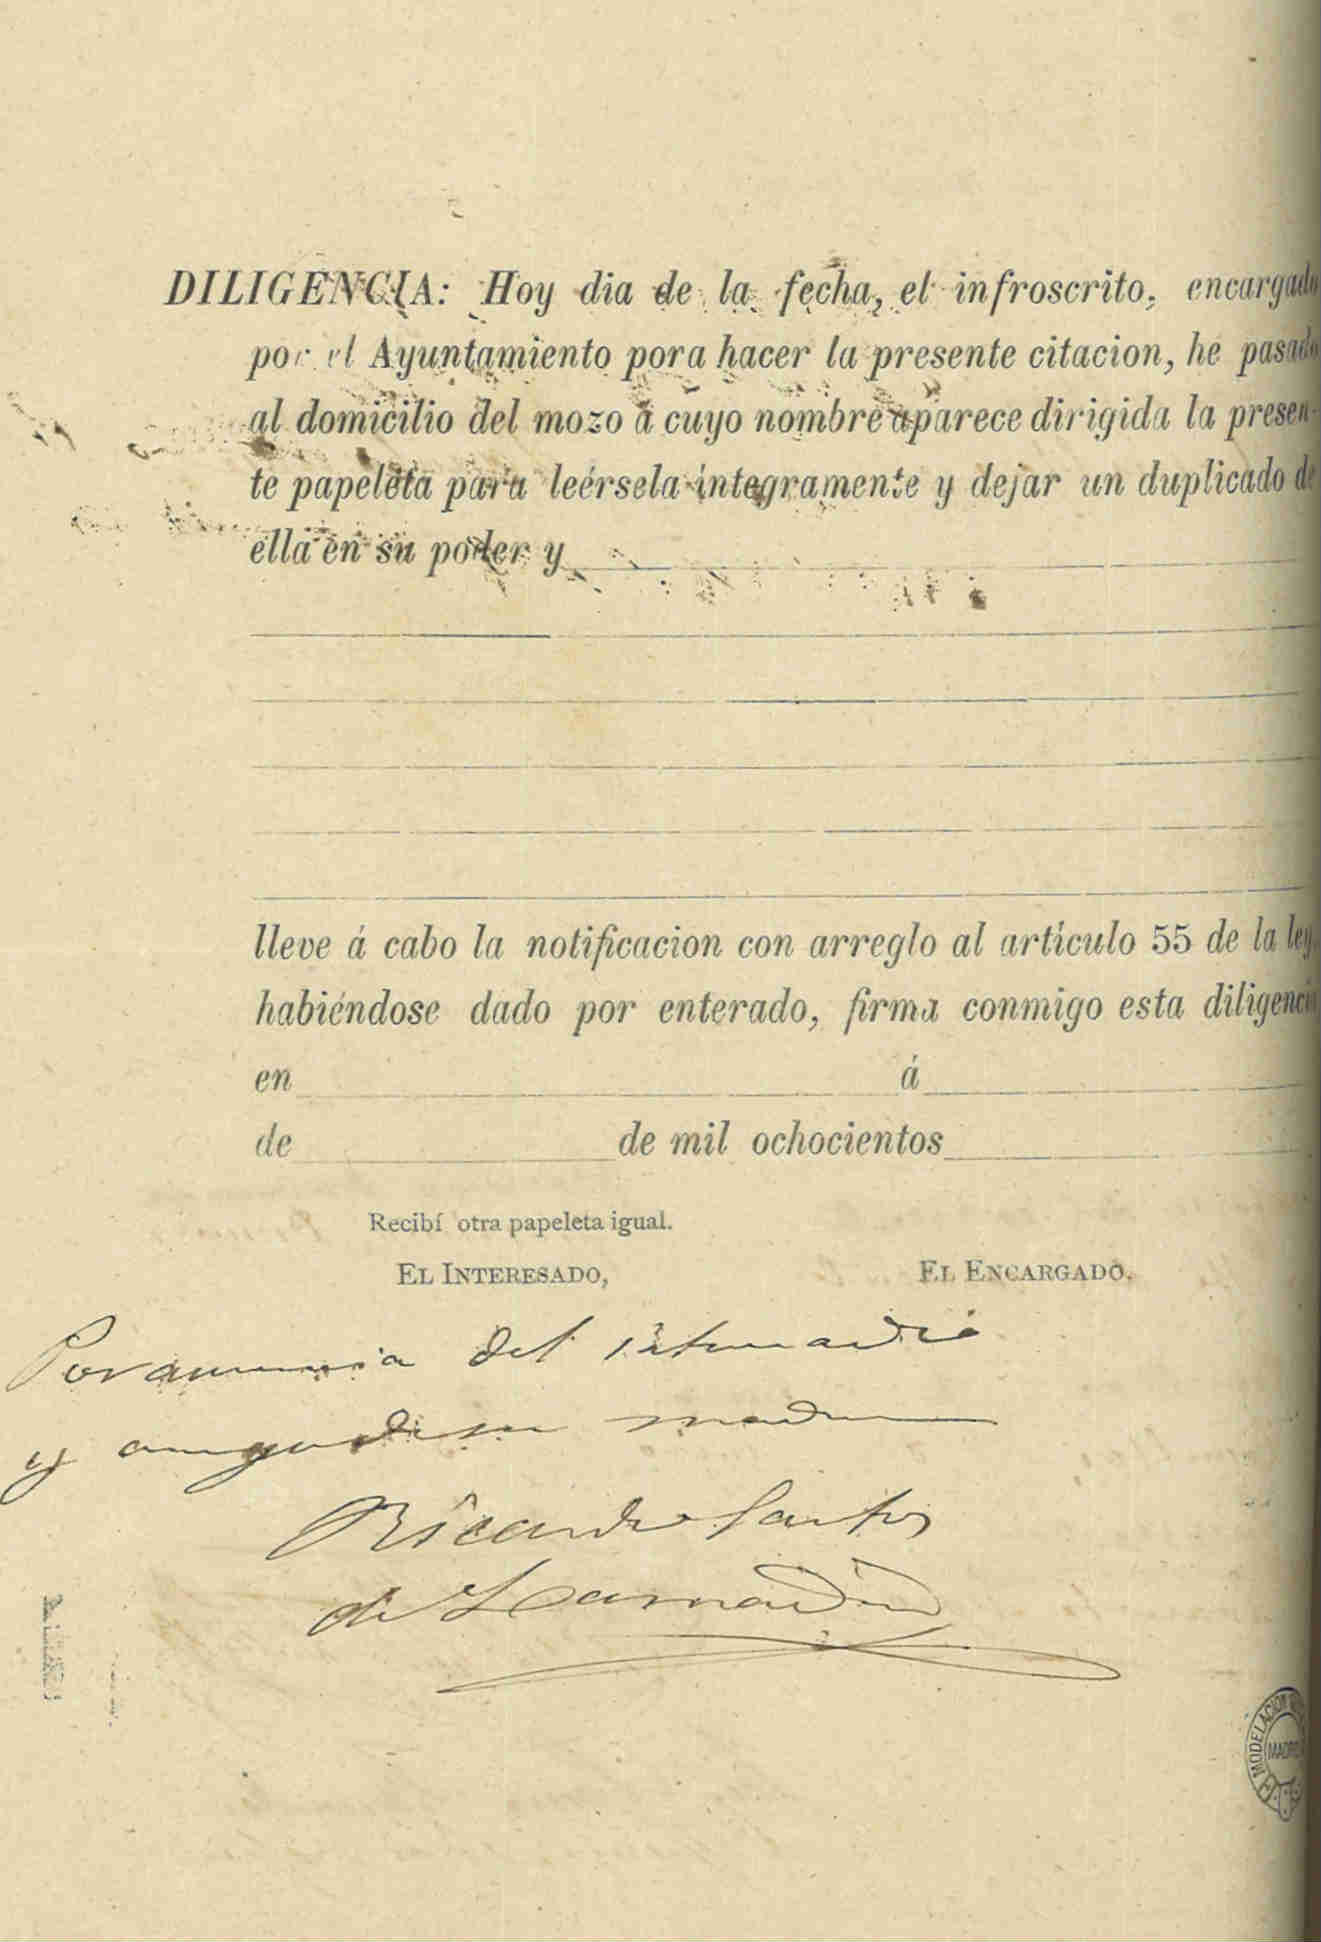 DILIGENCIA: Hoy dia de la fecha, el infroscrito, encargado
por el Ayuntamiento pora hacer la presente citacion, he pasado
al domicilio del mozo á cuyo nombre aparece dirigida la presen-
te papeleta para leérsela íntegramente y dejar un duplicado de
ella en su poder y
lleve á cabo la notificacion con arreglo al artículo 55 de la ley
habiéndose dado por enterado, firma conmigo esta diligencia
en á
de de mil ochocientos
Recibí otra papeleta igual.
EL INTERESADO, EL ENCARGADO.
Por ausencia del interesado
y madre
Ricardo Santos
de Lamadrid
MODELACION
MADRID